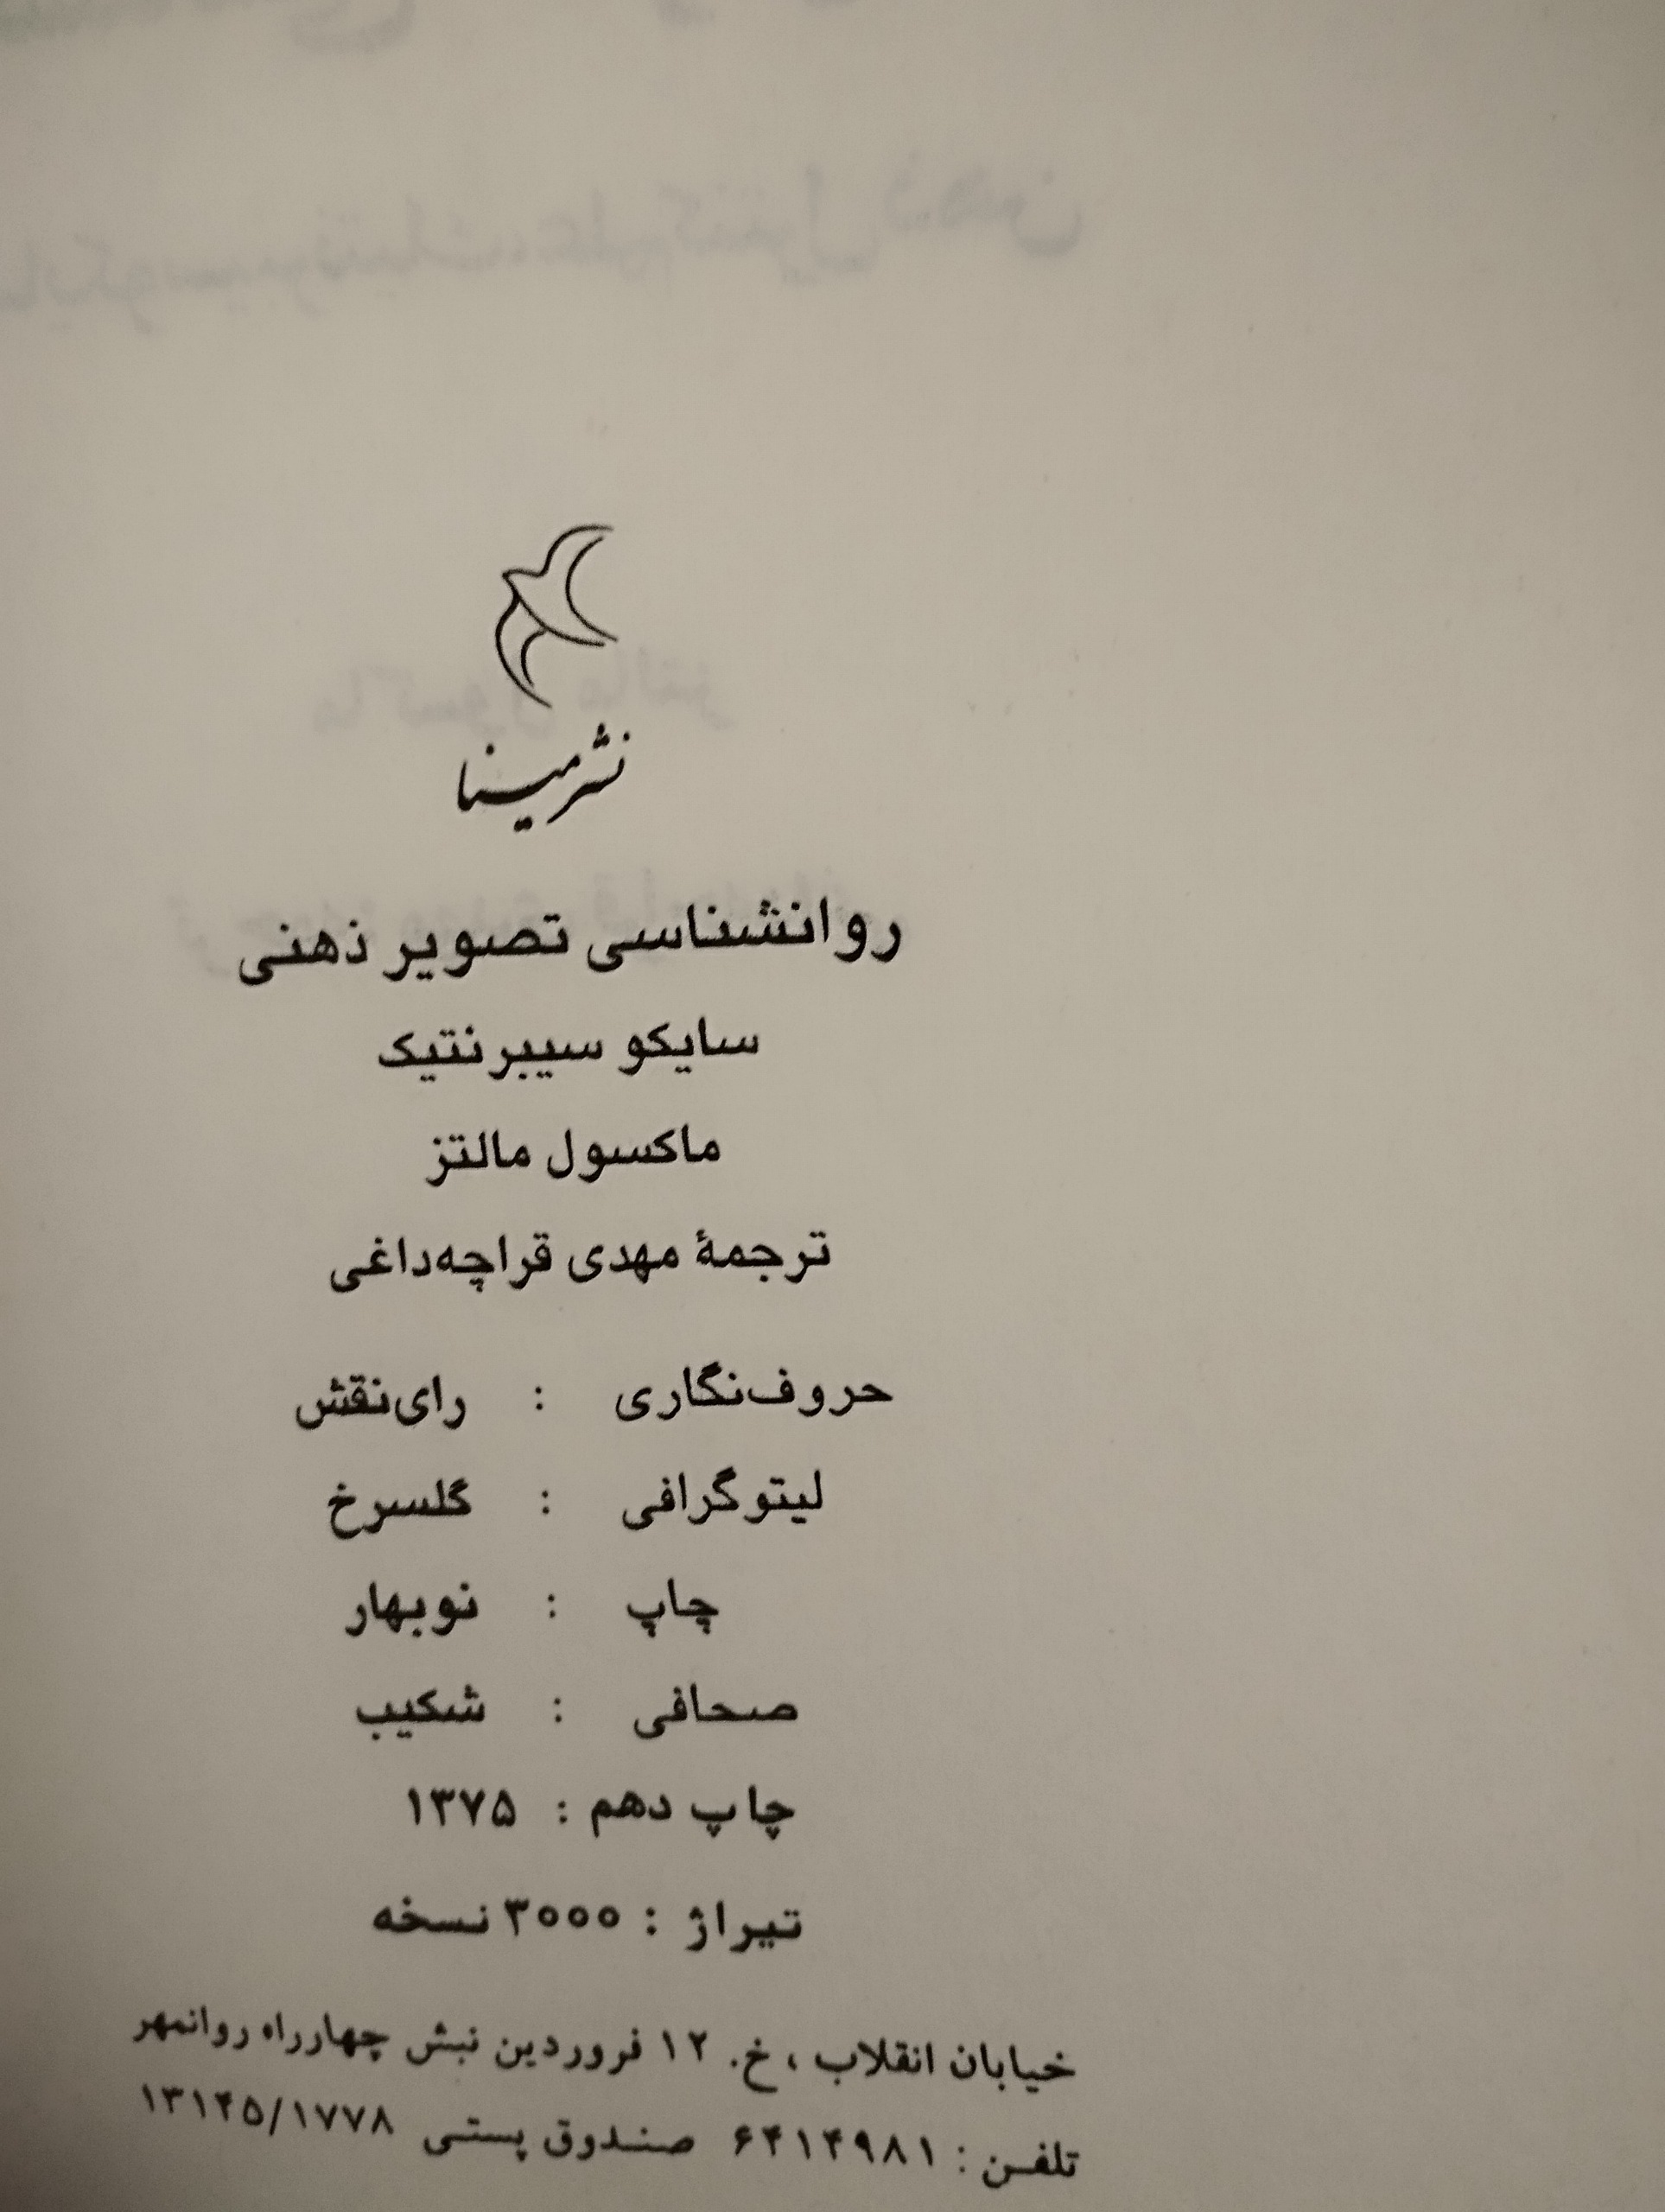 نشر مینا
روانشناسی تصویر ذهنی
سایکو سیبرنتیک
ماکسول مالتز
ترجمهٔ مهدی قراچه‌داغی
حروف‌نگاری : رای‌نقش
لیتوگرافی : گلسرخ
چاپ : نوبهار
صحافی : شکیب
چاپ دهم : ۱۳۷۵
تیراژ : ۳۰۰۰ نسخه
خیابان انقلاب ، خ. ۱۲ فروردین نبش چهارراه روانمهر
تلفن : ۶۴۱۴۹۸۱ صندوق پستی ۱۳۱۴۵/۱۷۷۸